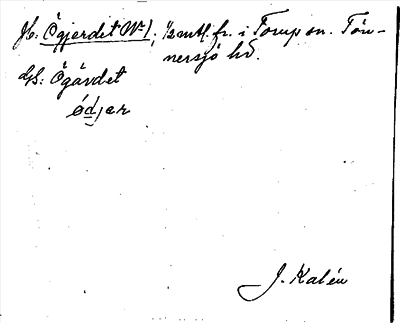 Jb: Ögjerdet No 1, 1/2 mtl. fr. i Torup sn. Tön-
nersjö hd.
GS: Ögärdet
ödjær
J. Kalén